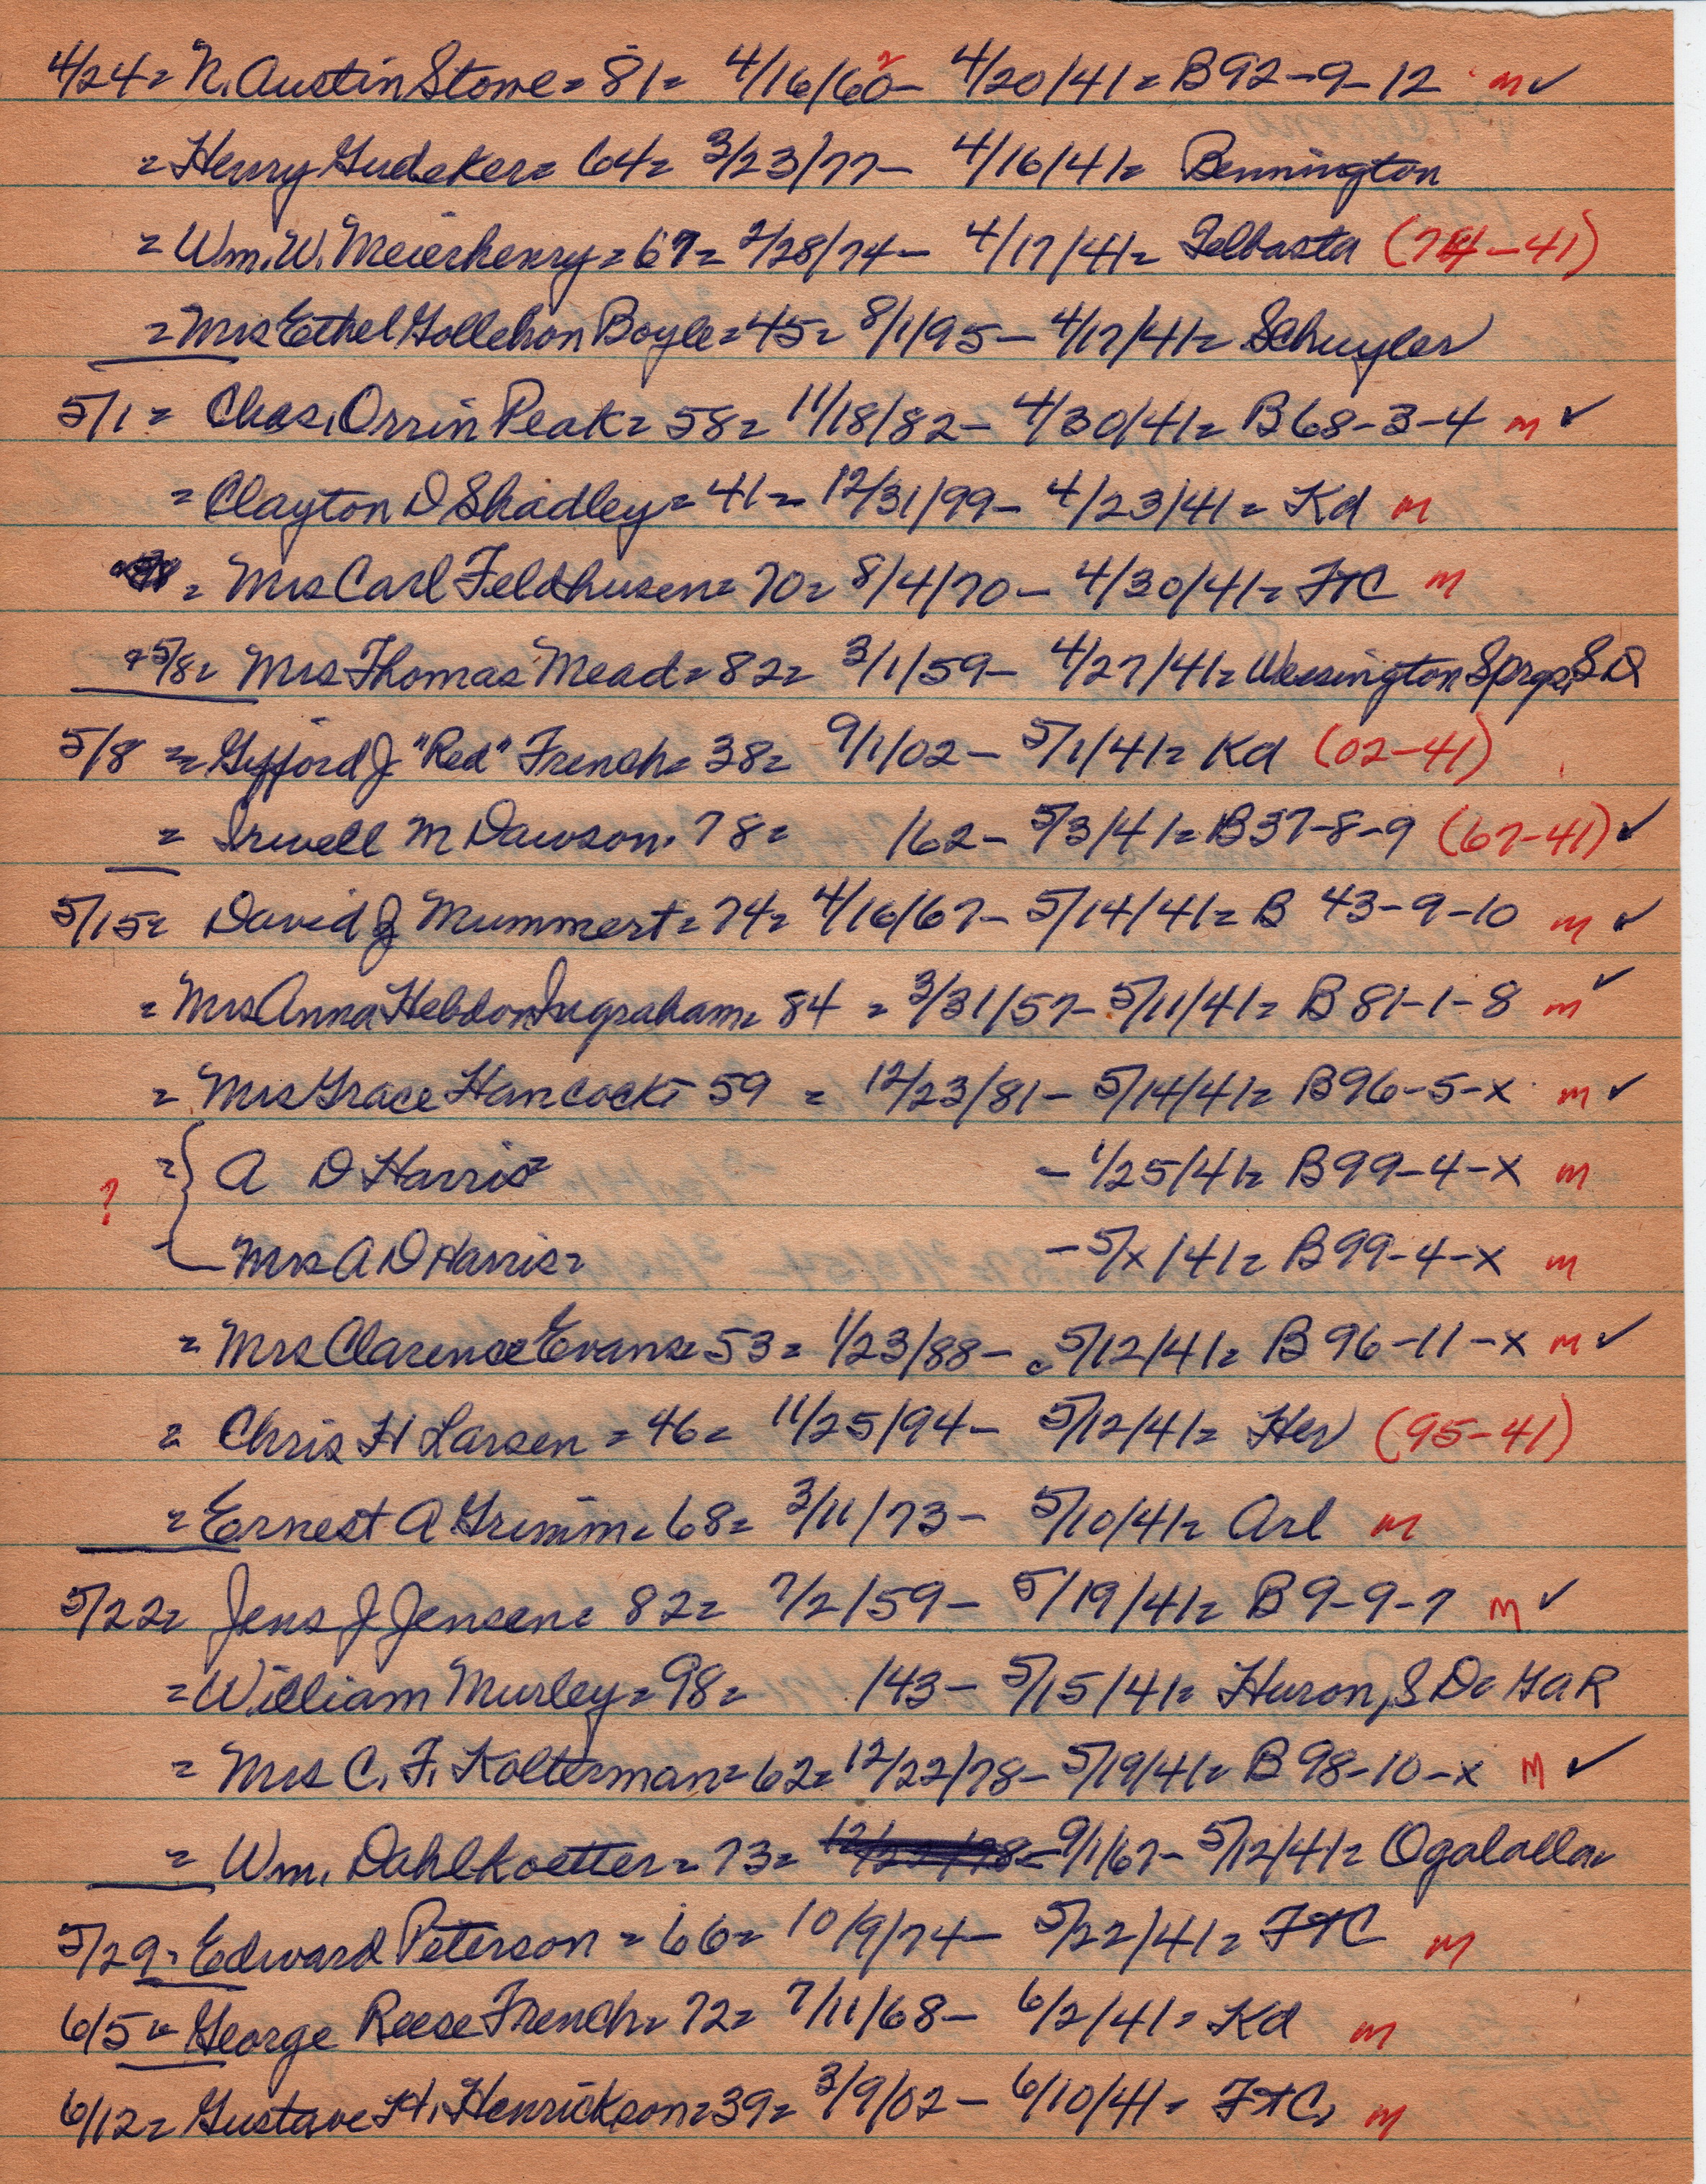 4/24= N. Austin Stowe= 81= 4/16/60- 4/20/41= B92-9-12 m✓
= Henry Gudeker= 64= 3/23/77- 4/16/41= Bennington
= Wm. W. Meierhenry= 67= 2/28/74- 4/17/41= Telbasta (74-41)
= Mrs Ethel Gollehon Boyle=45= 8/1/95- 4/17/41= Schuyler
5/1= Chas. Orrin Peak= 58= 11/18/82- 4/30/41= B68-3-4 m ✓
= Clayton D Shadley= 41= 12/31/99- 4/23/41= Kd m
= Mrs Carl Feldhusen= 70= 8/4/70- 4/30/41= FtC m
5/8= Mrs Thomas Mead= 82= 3/1/59- 4/27/41= Wessington Sprgs, SD
5/8 = Gifford J "Red" French= 38= 9/1/02- 5/1/41= Kd (02-41)
= Irwell M Dawson. 78= /62- 5/3/41= B37-8-9 (67-41)✓
5/15= David J Mummert= 74= 4/16/67- 5/14/41= B 43-9-10 m ✓
= Mrs Anna Hebdon Ingraham= 84 = 3/31/57- 5/11/41= B81-1-8 m✓
= Mrs Grace Hancock= 59 = 12/23/81- 5/14/41= B96-5-x m✓
? ={ A D Harris= - 1/25/41= B99-4-x m
Mrs A D Harris= - 5/x/41= B99-4-x m
= Mrs Clarence Evans= 53= 1/23/88- 5/12/41= B 96-11-x m✓
= Chris H Larsen = 46= 11/25/94- 5/12/41= Her (95-41)
= Ernest A Grimm= 68= 3/11/73- 5/10/41= Arl m
5/22= Jens J Jensen= 82= 7/2/59- 5/19/41= B9-9-7 m ✓
= William Murley= 98= /43- 5/15/41= Huron, S D= GAR
= Mrs C. F. Kolterman= 62= 12/22/78- 5/19/41= B98-10-x m ✓
= Wm. Dahlkoetter= 73= 9/1/67- 5/12/41= Ogalalla
5/29= Edward Peterson = 66= 10/9/74- 5/22/41= FtC m
6/5= George Reese French= 72= 7/11/68- 6/2/41= Kd m
6/12= Gustave H. Henrickson=39= 3/9/02- 6/10/41= FtC. m